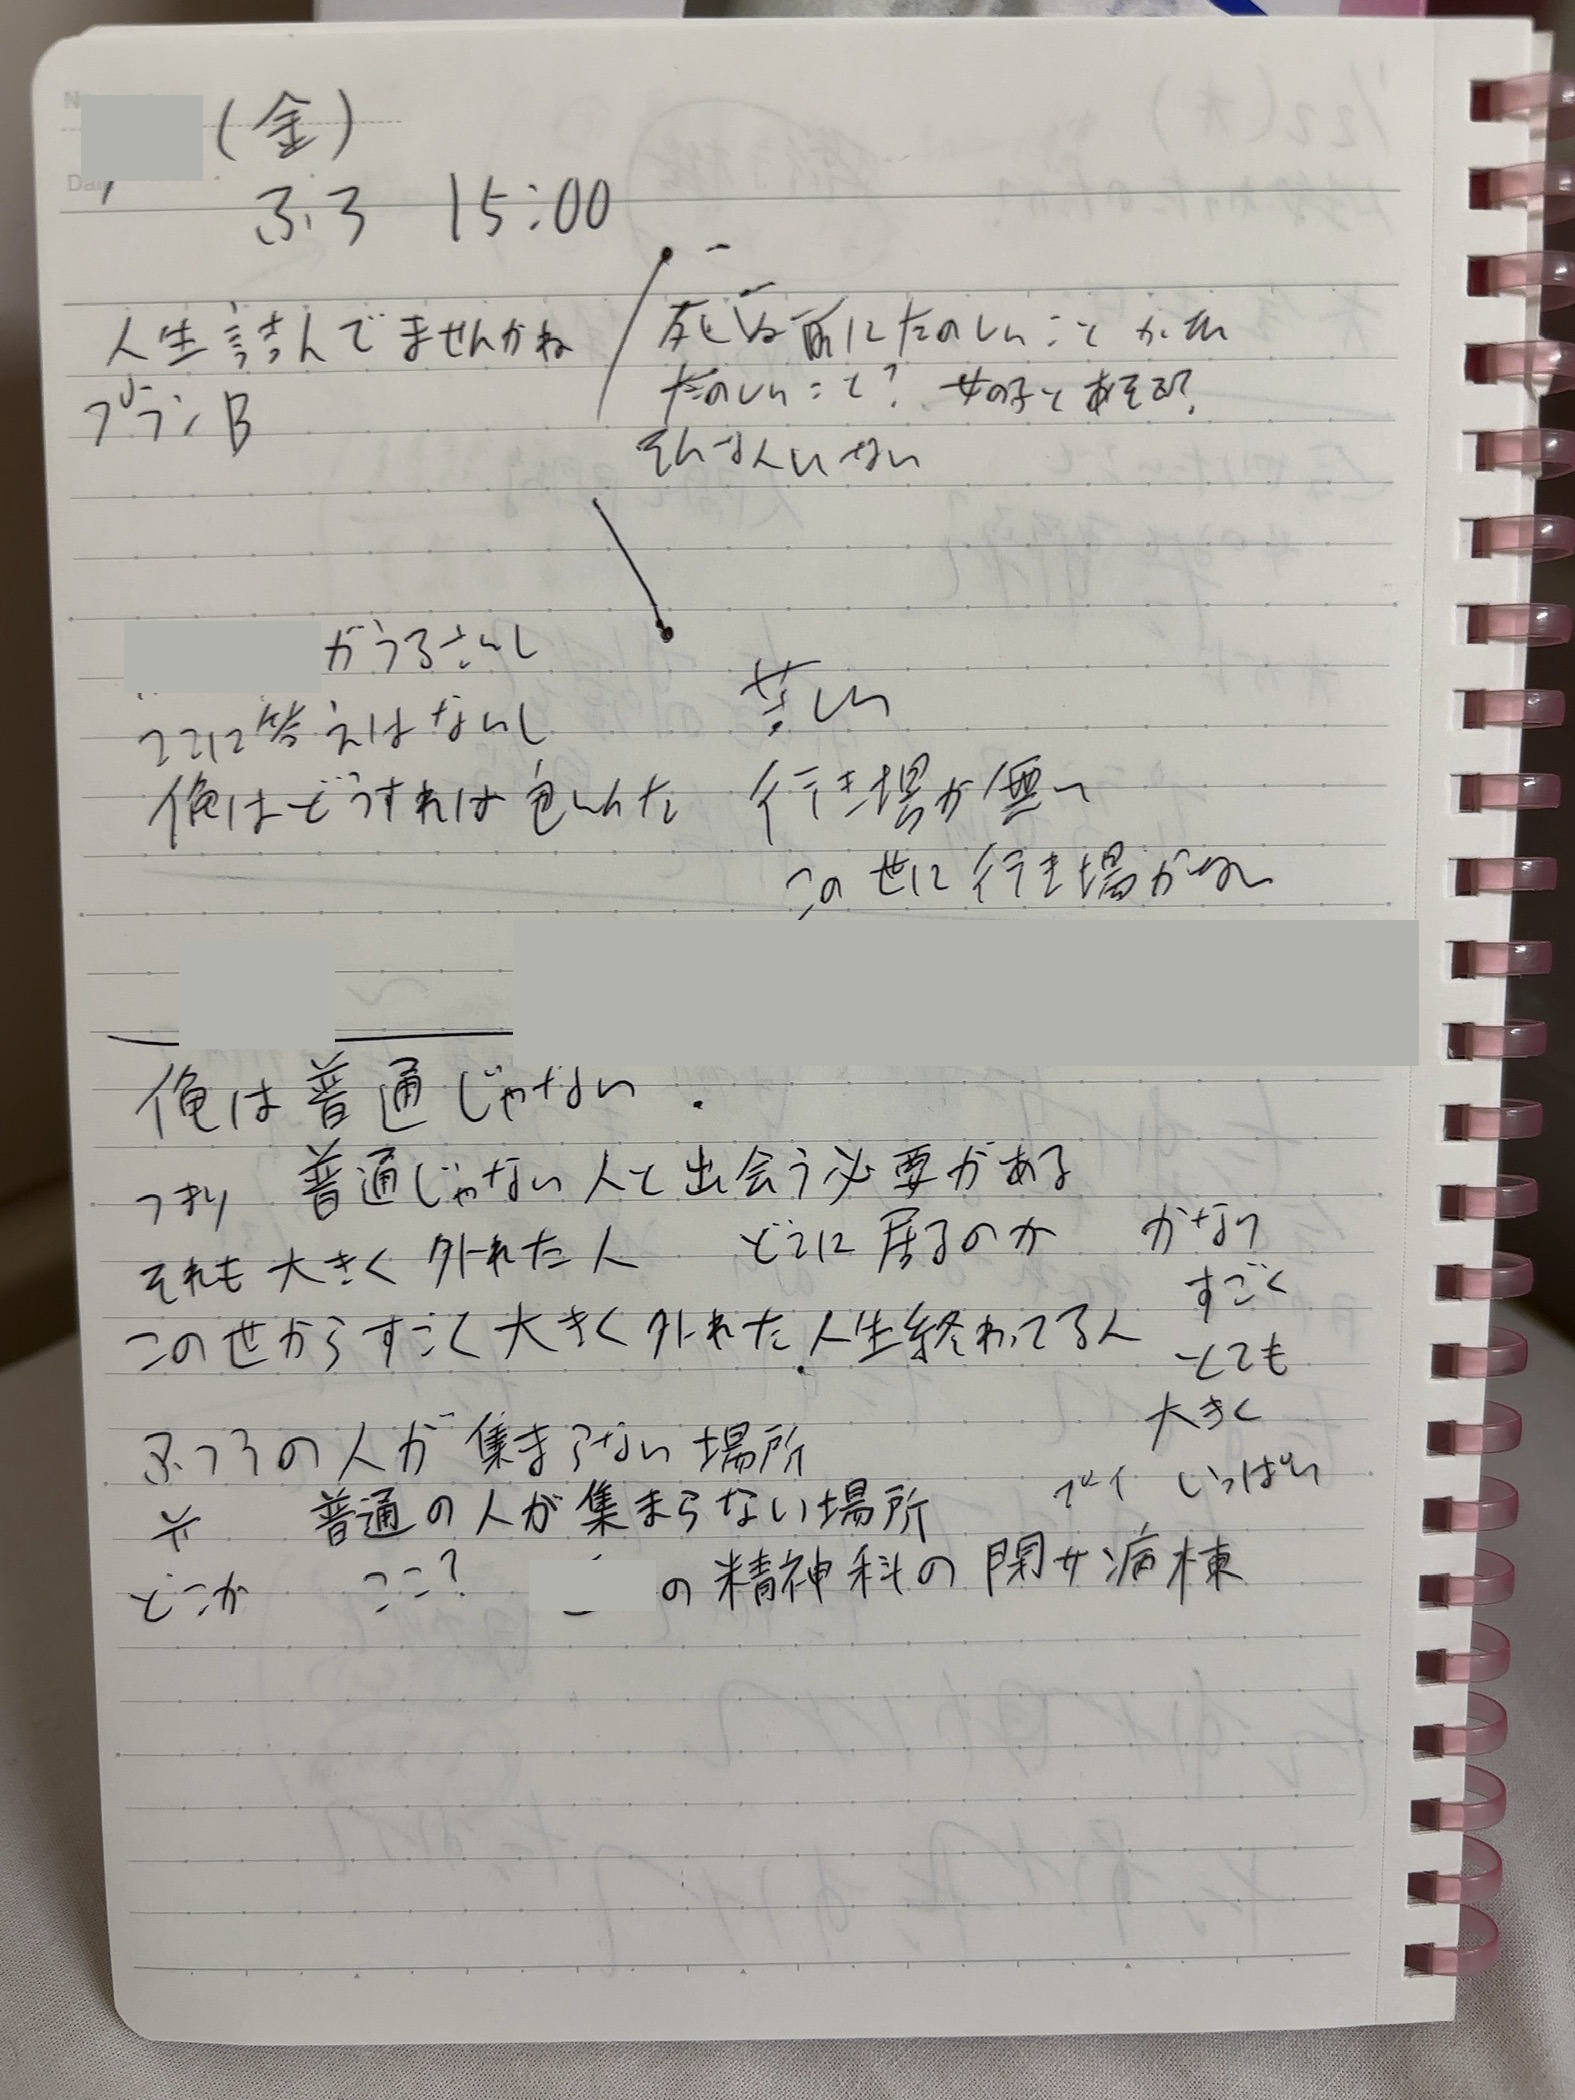 (金)
ふろ 15:00
人生詰んでませんかね
プランB
死ぬ前にたのしいこと
たのしいこと? 女の子とあそぶ?
そんな人いない
がうるさいし
ここに答えはないし
俺はどうすれば
苦しい
行き場が無い
この世に行き場がない
俺は普通じゃない.
つまり 普通じゃない人と出会う必要がある
それも大きく外れた人 どこに居るのか
この世からすごく大きく外れた、人生終わってる人
かなり
すごく
とても
大きく
いっぱい
ふつうの人が集まらない場所
普通の人が集まらない場所
どこか ここ? の精神科の閉サ病棟